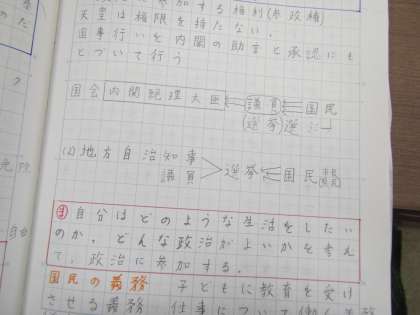 参加する権利(参政権)
天皇は権限を持たない。
国事行いを内閣の助言と承認にも
とづいて行う
国会 内閣総理大臣 議員 国民
(選挙) 選ぶ
(2)地方自治 知事
議員 選挙 国民
自分はどのような生活をしたい
のか。どんな政治がよいかを考え
て、政治に参加する。
国民の義務 子どもに教育を受け
させる義務 仕事について働く義務